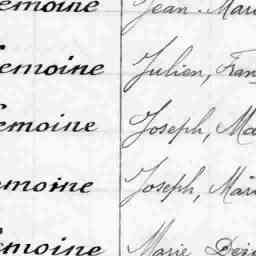 emoine Jean-Mari
emoine Julien, Fran
emoine Joseph, Ma
emoine Joseph, Mari
emoine Marie Desi